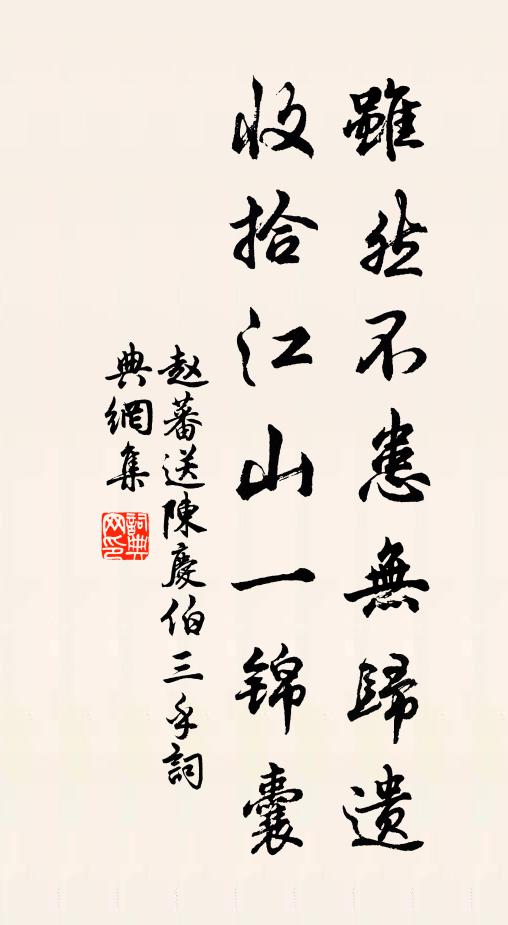 雖然不患無歸遺
收拾江山一锦囊
赵蕃送陳慶伯三手詞
典網集
詞典网印